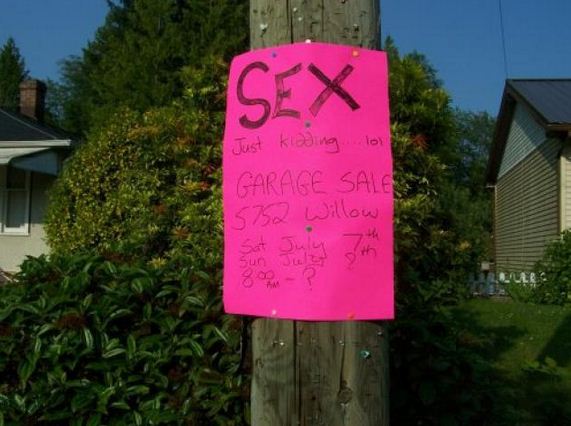 SEX
Just kidding....lol
GARAGE SALE
5752 Willow
Sat July 7th
Sun July 8th
8:00 AM - ?